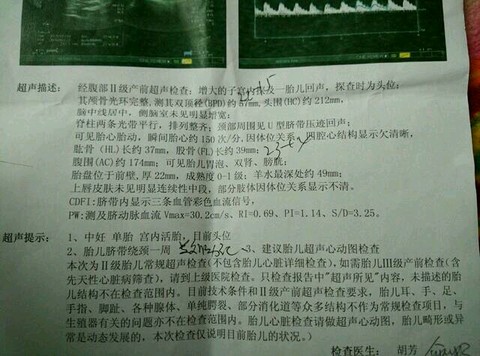 超声描述： 经腹部Ⅱ级产前超声检查：增大的子宫内见一胎儿回声，探查时为头位；
其颅骨光环完整，测其双顶径(BPD)约57mm，头围(HC)约212mm，
脑中线居中，侧脑室未见明显增宽；
脊柱两条光带平行，排列整齐；颈部周围见U型脐带压迹回声；
可见胎心胎动，瞬间胎心约150次/分，因体位关系，四腔心结构显示欠清晰，
肱骨（HL)长约37mm，股骨(FL)长约39mm；
腹围(AC)约174mm；可见胎儿胃泡、双肾、膀胱；
胎盘位于前壁，厚22mm，成熟度0-1级；羊水最深处约49mm；
上唇皮肤未见明显连续性中段，部分肢体因体位关系显示不清。
CDFI:脐带内显示三条血管彩色血流信号，
PW:测及脐动脉血流Vmax=30.2cm/s，RI=0.69、PI=1.14、S/D=3.25。
超声提示： 1、中妊 单胎 宫内活胎，目前头位
2、胎儿脐带绕颈一周 3、建议胎儿超声心动图检查
本次为Ⅱ级胎儿常规超声检查(不包含胎儿心脏详细检查)，如需胎儿Ⅲ级产前检查(含
先天性心脏病筛查)，请到上级医院检查。只检查报告中"超声所见"内容，未描述的胎
儿结构不在检查范围内。目前技术条件和Ⅱ级产前超声检查要求，胎儿耳、手、足、
手指、脚趾、各种腺体、单纯腭裂、部分消化道等众多结构不作为常规检查项目，与
生殖器有关的问题亦不在检查范围内。胎儿心脏检查请做超声心动图，胎儿畸形或异
常是动态发展的，本次检查仅说明目前胎儿的状况。)
检查医生： 胡芳